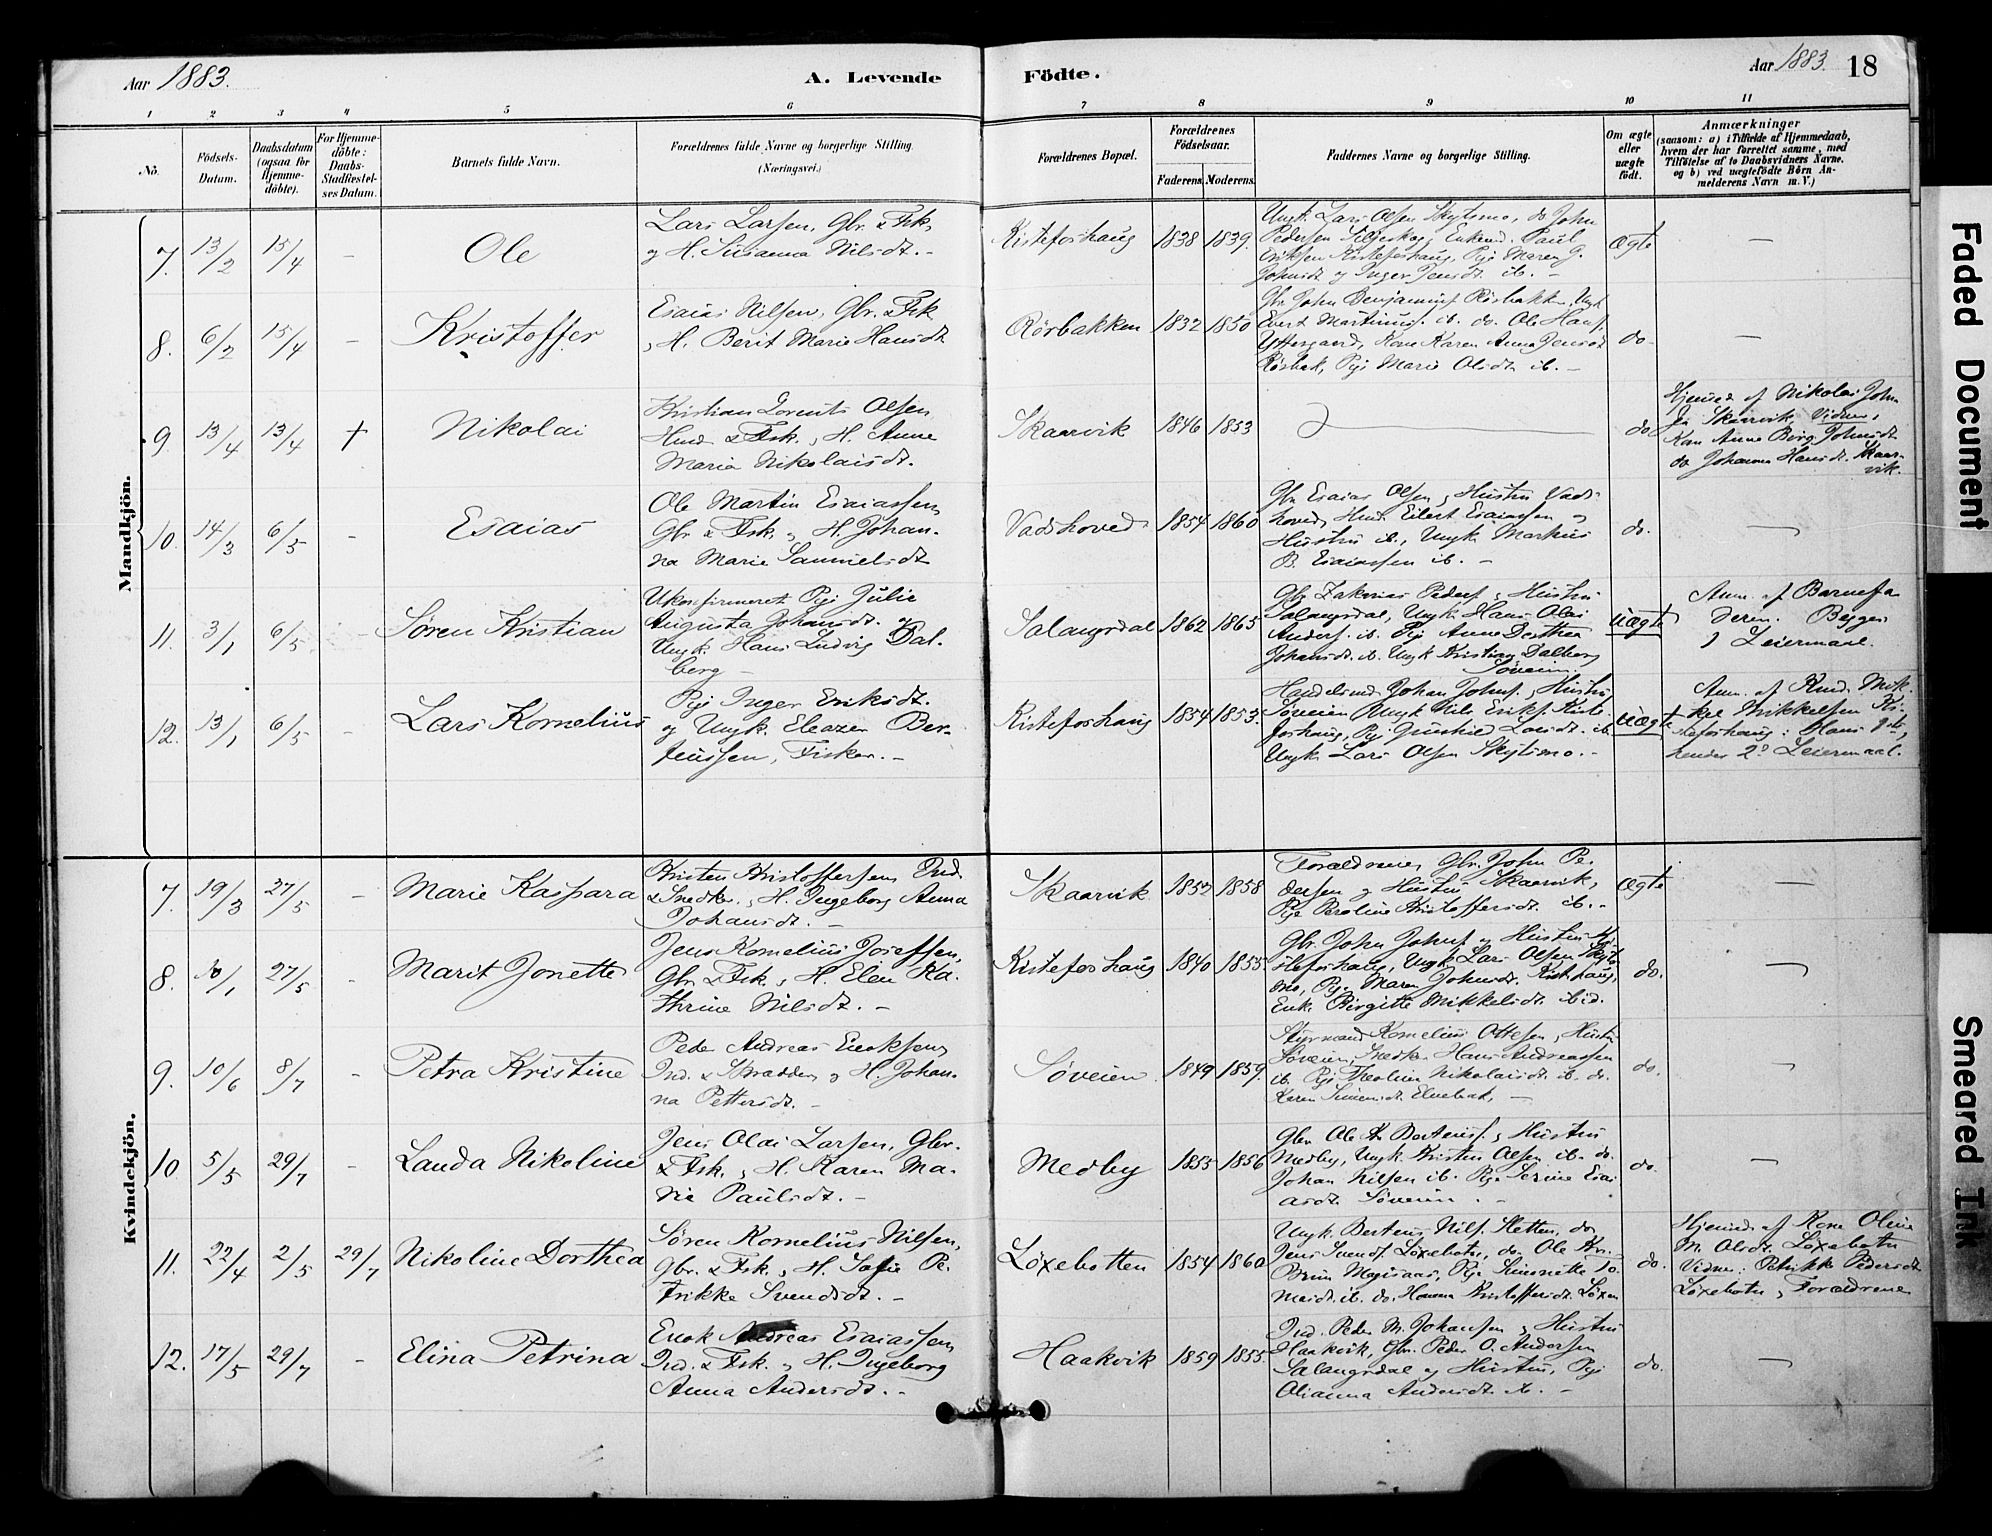 Aar 1883.
A. Levende Födte.
Aar 1883. 18
1 2 3 4 5 6 7 8 9 10 11
No.
Födsels-Datum.
Daabsdatum (ogsaa for Hjemme-döbte).
For Hjemme-döbte: Daabs-Stadfæstel-ses Datum.
Barnets fulde Navn.
Forældrenes fulde Navne og borgerlige Stilling.
(Næringsvei.)
Forældrenes Bopæl.
Forældrenes Födselsaar.
Faderens Moderens.
Faddernes Navne og borgerlige Stilling.
Om ægte eller uægte födt.
Anmærkninger
(saasom: a) i Tilfælde af Hjemmedaab,
hvem der har forrettet samme, med
Tilföielse af to Daabsvidners Navne,
og b) ved uægtefödte Börn An-
melderens Navn m.V.)
Mandkjön.
7. 13/2 15/4 - Ole
Lars Larsen, Gbr. & Fsk.
og H. Susanna Nilsdt. -
Kisteforshaug 1838 1839.
Ungk. Lars Olsen Skytsmo, do John
Pedersen Siljeskog, Enkemd. Paul
Eriksen Kisteforshaug, Pige Maren G.
Johnsdt og Inger Jensdt ib. -
Ægte -
8. 6/2 15/4 - Kristoffer
Esaias Nilsen, Gbr. & Fsk
, H. Berit Marie Hansdt
Rörbakken 1832 1850
Gbr. John Benjamins. Rörbakken, Ungk
Evert Martinus. ib. do. Ole Hans.
Yttersgaard, Kone Karen Anna Jensdt
Rörbak, Pige Marie Olsdt ib. -
do. -
9. 13/4 13/4 + Nikolai
Kristian Lorents Olsen
Husmd. & Fsk. , H. Anne
Maria Nikolaisdt.
Skaarvik 1846 1853
do
Hjemmed. af Nikolai John
Skaarvik, Vidner,
Kone Anne Berg. Johnsdt
do Johanna Hansdt. Skaar-
vik.
10. 14/3 6/5 - Esaias
Ole Martin Esaiassen,
Gbr & Fsk. , H. Johan-
na Marie Samuelsdt
Vadshoved 1854 1860
Gbr Esaias Olsen , Hustru Vads-
hoved, Husmd. Eilert Esaiassen og
Hustru ib., Ungk. Markus
B. Esaiassen ib. -
do. -
11. 3/1 6/5 - Sören Kristian
Ukonfirmeret Pige Julie
Augusta Johansdt. og
Ungk. Hans Ludvig Dal-
berg -
Salangsdal 1862 1865
Gbr. Zakarias Peders , Hustru
Salangsdal, Ungk Hans Olai
Anders. ib. Pige Anne Dorthea
Johansdt. ib. Ungk Kristian Dalberg
Söveien.
Uægte
Anm. af Barnefa
deren. Begges
1 Leiermaal.
12. 13/1 6/5 - Lars Kornelius
Pige Inger Eriksdt.
og Ungk. Eleazer Ber-
Jenssen, Fisker. -
Kisteforshaug 1854 1853.
Handelsmd Johan Johns. , Hustru
Söveien, Ungk Nils Eriks. Kiste
forshaug, Pige Gunhild Larsdt. ib.
Ungk Lars Olsen Skytsmo. -
Uægte
Anm. af Kmd. Mik-
kel Mikkelsen Ki-
steforshaug: Hans 1ste,
hendes 2d Leiermaal.
Kvindekjön.
7. 19/3 27/5 - Marie Kaspara
Kristen Kristoffersen Ind.
& Snedker , H. Ingeborg Anna
Johansdt. -
Skaarvik 1852 1858
Forældrene, Gbr. John Pe-
dersen og Hustru Skaarvik,
Pige Peroline Kristoffersdt. ib. -
Ægte -
8. 10/1 27/5 - Marit Jonette
Jens Kornelius Joseffsen,
Gbr. & Fsk. , H. Elen Ka-
thrine Nilsdt. -
Kisteforshaug 1840 1855.
Gbr. John Johns. og Hustru Ki-
steforshaug, Ungk Lars Olsen Skyts-
mo, Pige Maren Johnsdt. Kistefhaug,
Enke Birgitte Mikkelsdt. ibid.
do. -
9. 10/6 8/7 - Petra Kristine
Peder Andreas Enoksen,
Ind. & Skrædder , H. Johan-
na Pettersdt. -
Söveien. 1849 1859.
Styrmand Kornelius Ottesen , Hustru
Söveien, Snedker Hans Andreassen
ib. Pige Theoline Nikolaisdt. ib. do.
Karen Simonsdt. Elvebak. -
do. -
10 5/5 29/7 - Lauda Nikoline
Jens Olai Larsen, Gbr.
& Fsk. , H. Karen Ma-
rie Paulsdt. -
Medby 1853 1856
Gbr. Ole K. Bertens. , Hustru
Medby, Ungk. Kristen Olsen ib. do.
Johan Nilsen ib. Pige Serine Esai
asdt. Söveien. -
do. -
11. 22/4 2/5 29/7 Nikoline Dorthea
Sören Kornelius Nilsen,
Gbr. & Fsk. , H. Sofie Pe-
trikke Svendsdt. -
Löxebotten 1854 1860
Ungk. Bertens Nils. Sletten, do
Jens Svends. Löxebotn, do Ole Kr.
Bruun Magisaas, Pige Simonette To-
mesdt. ib. do. Hanna Kristoffersdt. Löxen
do.
Hjemmed. af Kone Oline
M. Olsdt. Löxebotn
Vidner: Petrikke Pedersdt
Löxebotn , Forældrene
12. 17/5 29/7 - Elina Petrina
Enok Andreas Esaiassen,
Ind. & Fsk. , H. Ingeborg
Anna Andersdt. -
Haakvik 1859 1855.
Ind. Peder M. Johansen , Hustru
Haakvik, Gbr. Peder O. Andersen
Salangsdal og Hustru, Pige
Olianna Andersdt. ib. -
do. -
Faded Document
Smeared Ink